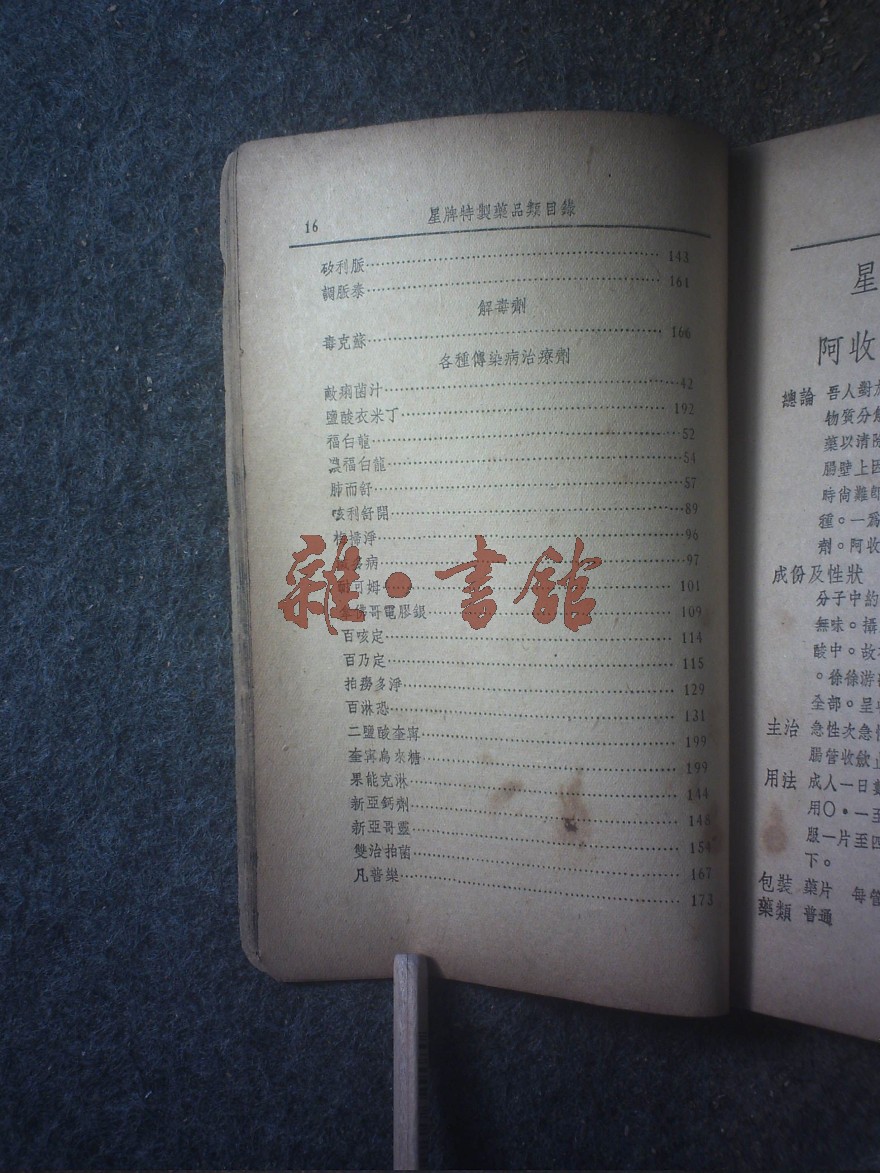 16 星牌特製藥品類目錄
矽利脈 143
調脈泰 161
解毒劑
毒克蘇 166
各種傳染病治療劑
敵痢菌汁 42
鹽酸衣米丁 192
福白龍 52
濃福白龍 54
肺而舒 57
咳利舒開 89
淨 96
病 97
可姆 101
佛哥電膠銀 109
百咳定 114
百乃定 115
拍撈多淨 129
百淋恐 131
二鹽酸奎寗 199
奎寗烏來糖 199
果能克淋 144
新亞鈣劑 148
新亞哥靈 154
雙治拍菌 167
凡普樂 173
雜·書館
星
阿收
總論 吾人對
物質分
藥以清
腸壁上因
時尚難
種。一為
劑。阿收
成份及性狀
分子中約
無味。攝
酸中。故
。徐徐游
全部。呈
主治 急性次急
腸管收斂
用法 成人一日
用〇·一至
服一片至四
下。
包裝 藥片 每管
藥類 普通